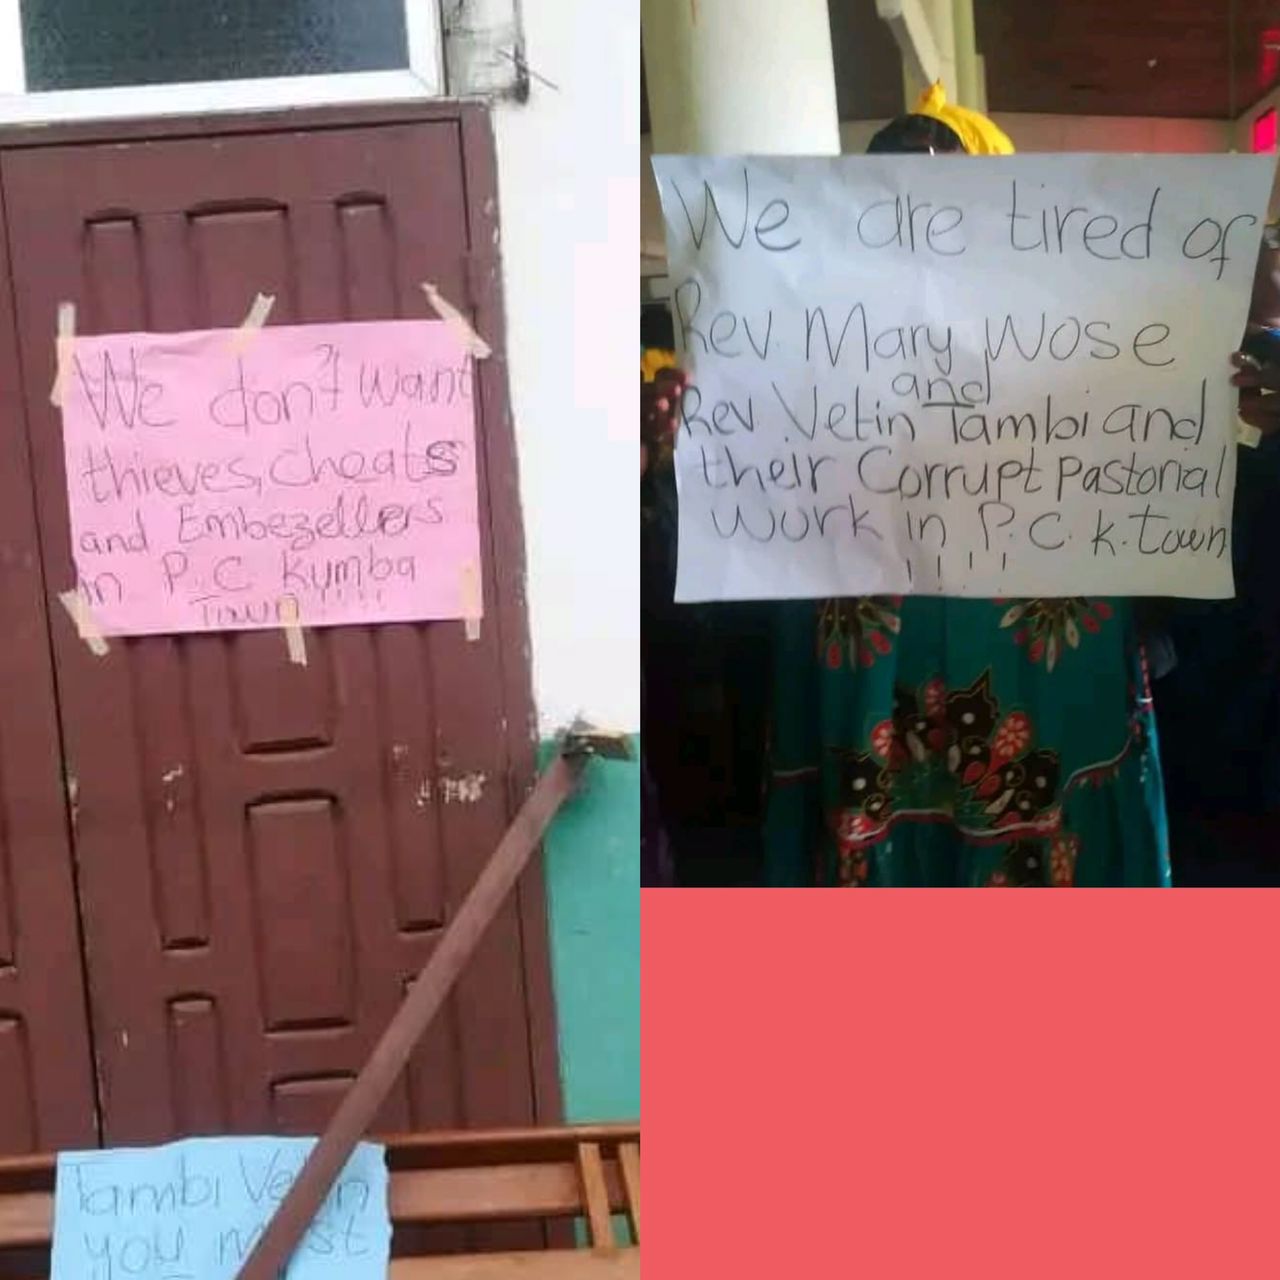 We don't want
thieves, cheats
and Embezellers
in P.C Kumba
Town !!!!
Tambi Vetin
you must
We are tired of
Rev. Mary Wose
and
Rev. Vetin Tambi and
their Corrupt pastorial
work in P.C. K. town
!!!!